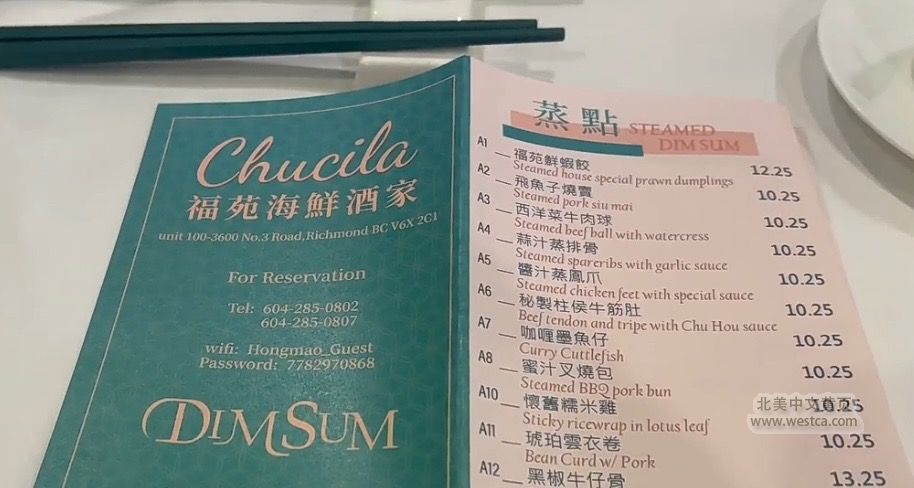 Chucila
福苑海鮮酒家
unit 100-3600 No.3 Road,Richmond BC V6X 2C1
For Reservation
Tel: 604-285-0802
604-285-0807
wifi: Hongmao_Guest
Password: 7782970868
DIM SUM
蒸點 STEAMED
DIM SUM
A1 福苑鮮蝦餃
Steamed house special prawn dumplings 12.25
A2 飛魚子燒賣
Steamed pork siu mai 10.25
A3 西洋菜牛肉球
Steamed beef ball with watercress 10.25
A4 蒜汁蒸排骨
Steamed spareribs with garlic sauce 10.25
A5 醬汁蒸鳳爪
Steamed chicken feet with special sauce 10.25
A6 秘製柱侯牛筋肚
Beef tendon and tripe with Chu Hou sauce 10.25
A7 咖喱墨魚仔
Curry Cuttlefish 10.25
A8 蜜汁叉燒包
Steamed BBQ pork bun 10.25
A10 懷舊糯米雞
Sticky ricewrap in lotus leaf 10.25
A11 琥珀雲衣卷
Bean Curd w/ Pork 10.25
A12 黑椒牛仔骨
13.25
北美中文首页
www.westca.com